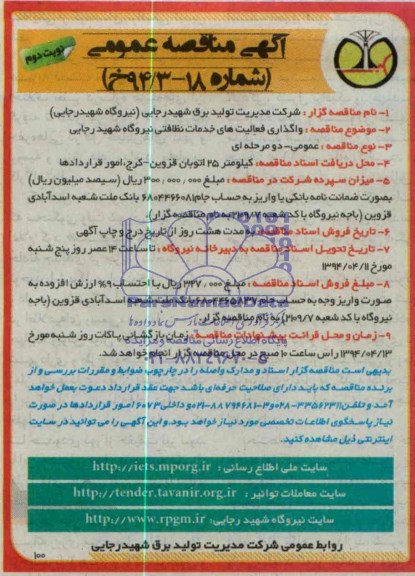 آگهی مناقصه عمومی
نوبت دوم
(شماره ۱۸-۹۴/۳خ)
۱- نام مناقصه گزار : شرکت مدیریت تولید برق شهیدرجایی (نیروگاه شهیدرجایی)
۲- موضوع مناقصه : واگذاری فعالیت های خدمات نظافتی نیروگاه شهید رجایی
۳- نوع مناقصه : عمومی- دو مرحله ای
۴- محل دریافت اسناد مناقصه: کیلومتر ۲۵ اتوبان قزوین-کرج، امور قراردادها
۵- میزان سپرده شرکت در مناقصه : مبلغ ۳۰۰,۰۰۰,۰۰۰ ریال (سیصد میلیون ریال)
بصورت ضمانت نامه بانکی یا واریز به حساب جام ۶۸۰۴۴۶۶۰۸۱ بانک ملت شعبه اسدآبادی
قزوین (باجه نیروگاه با کد شعبه ۲۱۰۹/۷ به نام مناقصه گزار).
۶- تاریخ فروش اسناد مناقصه: به مدت هشت روز از تاریخ درج و چاپ آگهی
۷- تاریخ تحویل اسناد مناقصه به دبیرخانه نیروگاه : تا ساعت ۱۴ عصر روز پنج شنبه
مورخ ۱۳۹۴/۰۴/۱۱
۸- مبلغ فروش اسناد مناقصه : مبلغ ۳۲۷,۰۰۰ ریال با احتساب ۹% ارزش افزوده به
صورت واریز وجه به حساب جام بانک ملت شعبه اسدآبادی قزوین (باجه
نیروگاه با کد شعبه ۲۱۰۹/۷) به نام مناقصه گزار.
۹- زمان و محل قرائت پیشنهادات مناقصه: زمان بازگشایی پاکات روز شنبه مورخ
۱۳۹۴/۰۴/۱۳ راس ساعت ۱۰ صبح در محل مناقصه گزار انجام خواهد شد.
بدیهی است مناقصه گزار اسناد و مدارک واصله را در چارچوب ضوابط و مقررات بررسی و از
برنده مناقصه که باید دارای صلاحیت حرفه ای باشد جهت عقد قرارداد دعوت بعمل خواهد
آمد و تلفن: داخلی ۶۰۷۳ امور قراردادها در صورت
نیاز پاسخگوی اطلاعات تخصصی مورد نیاز خواهد بود. و این آگهی را می توانید در سایت
اینترنتی ذیل مشاهده کنید.
سایت ملی اطلاع رسانی : http://iets.mporg.ir
سایت معاملات توانیر : http://tender.tavanir.org.ir
سایت نیروگاه شهید رجایی: http://www.rpgm.ir
روابط عمومی شرکت مدیریت تولید برق شهیدرجایی
۱۰۰